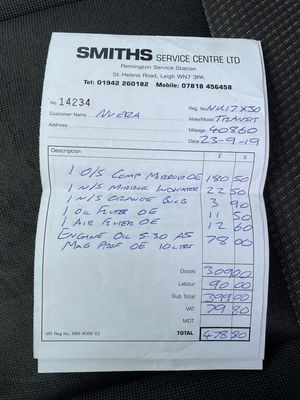 SMITHS SERVICE CENTRE LTD
Pennington Service Station
St. Helens Road, Leigh WN7 3PA
Tel: 01942 260182 Mobile: 07818 456458
No. 14234
Reg No. NU17X
Customer Name NUERA
Make/Model TRANSIT
Address
Mileage 40860
Date 23-9-19
Description £ P
1 O/S COMP MIRROR OE 180 50
1 N/S MIRROR INDICATOR 22 50
1 N/S ORANGE BULB 3 90
1 OIL FILTER OE 11 50
1 AIR FILTER OE 12 60
ENGINE OIL 5.30 A5 78 00
MAG PROF OE 10 LTRS
Goods 309 00
Labour 90 00
Sub Total 399 00
VAT 79 80
MOT
VAT Reg No. TOTAL 478 80